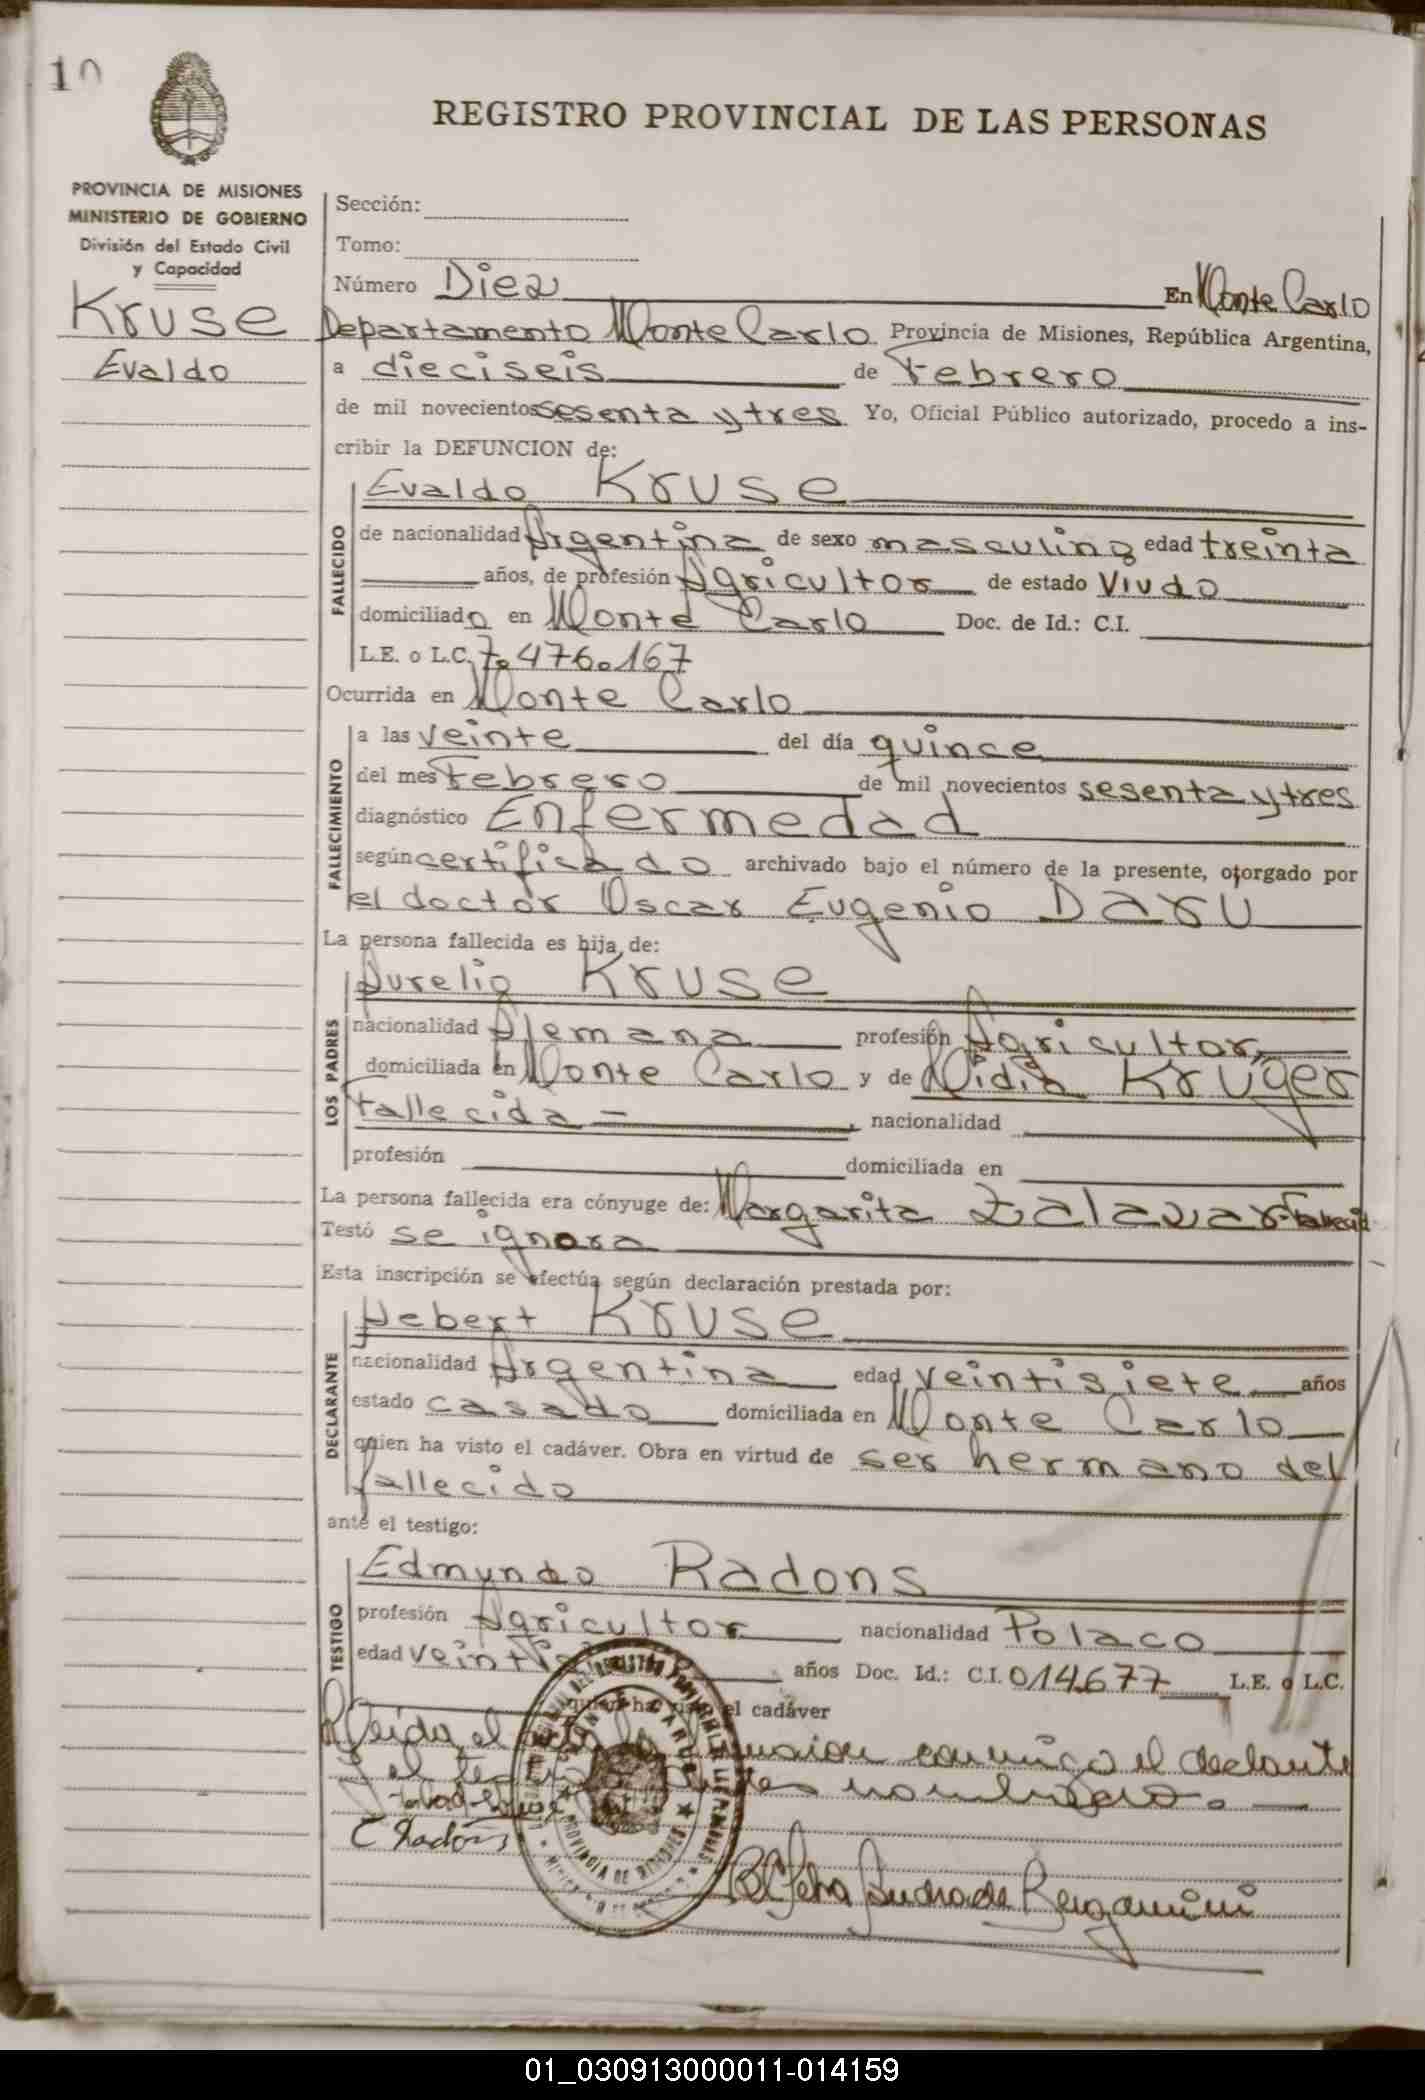 10
REGISTRO PROVINCIAL DE LAS PERSONAS
PROVINCIA DE MISIONES
MINISTERIO DE GOBIERNO
División del Estado Civil
y Capacidad
Kruse
Evaldo
Sección:
Tomo:
Número Diez En Monte Carlo
Departamento Monte Carlo Provincia de Misiones, República Argentina,
a dieciseis de Febrero
de mil novecientos sesenta y tres Yo, Oficial Público autorizado, procedo a ins-
cribir la DEFUNCION de:
FALLECIDO
Evaldo Kruse
de nacionalidad Argentina de sexo masculino edad treinta
años, de profesión Agricultor de estado Viudo
domiciliado en Monte Carlo Doc. de Id.: C.I.
L.E. o L.C. 7.476.167
Ocurrida en Monte Carlo
FALLECIMIENTO
a las veinte del día quince
del mes Febrero de mil novecientos sesenta y tres
diagnóstico Enfermedad
según certificado archivado bajo el número de la presente, otorgado por
el doctor Oscar Eugenio Daru
La persona fallecida es hija de:
LOS PADRES
Aurelio Kruse
nacionalidad Alemana profesión Agricultor,
domiciliada en Monte Carlo y de Kruger
Fallecida nacionalidad
profesión domiciliada en
La persona fallecida era cónyuge de: Margarita Zalazar-
Testó se ignora
Esta inscripción se efectúa según declaración prestada por:
DECLARANTE
Hebert Kruse
nacionalidad Argentina edad veintisiete años
estado casado domiciliada en Monte Carlo
quien ha visto el cadáver. Obra en virtud de ser hermano del
fallecido
ante el testigo:
TESTIGO
Edmundo Radons
profesión Agricultor nacionalidad Polaco
edad años Doc. Id.: C.I. 014.677 L.E. o L.C.
quien ha el cadáver
Leida el conmigo el
y el nombrado.
E Radons
Andrade Bergamini
PROVINCIA DE MISIONES
01_030913000011-014159